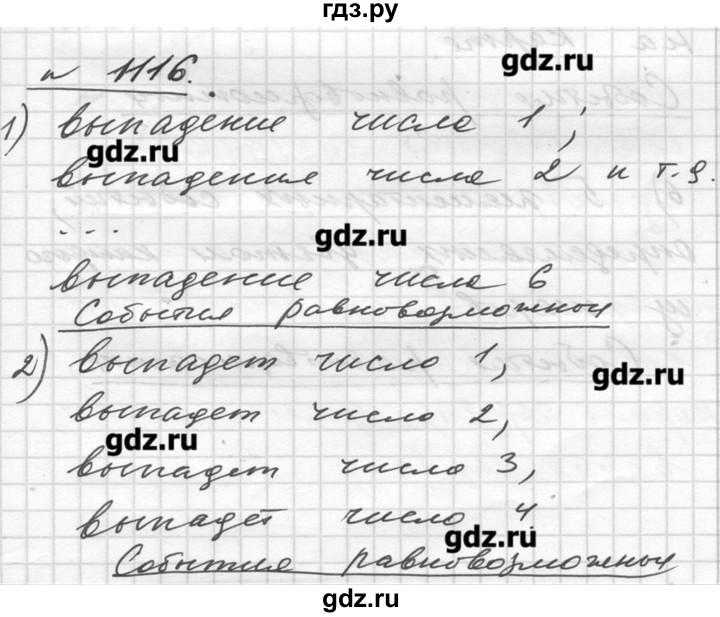 гдз.ру
№ 1116.
gdz.ru
1) выпадение числа 1;
gdz.ru
выпадение числа 2 и т.д.
...
gdz.ru
выпадение числа 6
События равновозможны
2) выпадет число 1,
gdz.ru
выпадет число 2,
gdz.ru
выпадет число 3,
выпадет число 4
gdz.ru
События равновозможны
gdz.ru